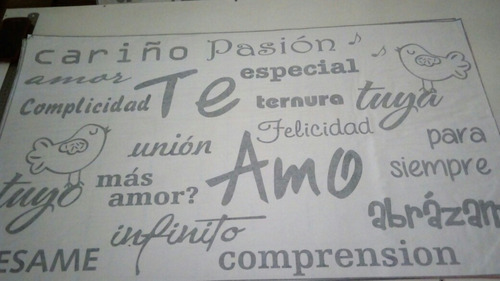 cariño Pasión
amor especial
Complicidad Te ternura tuya
Felicidad para
unión siempre
tuyo más Amo
amor? abrázam
infinito
ESAME comprension